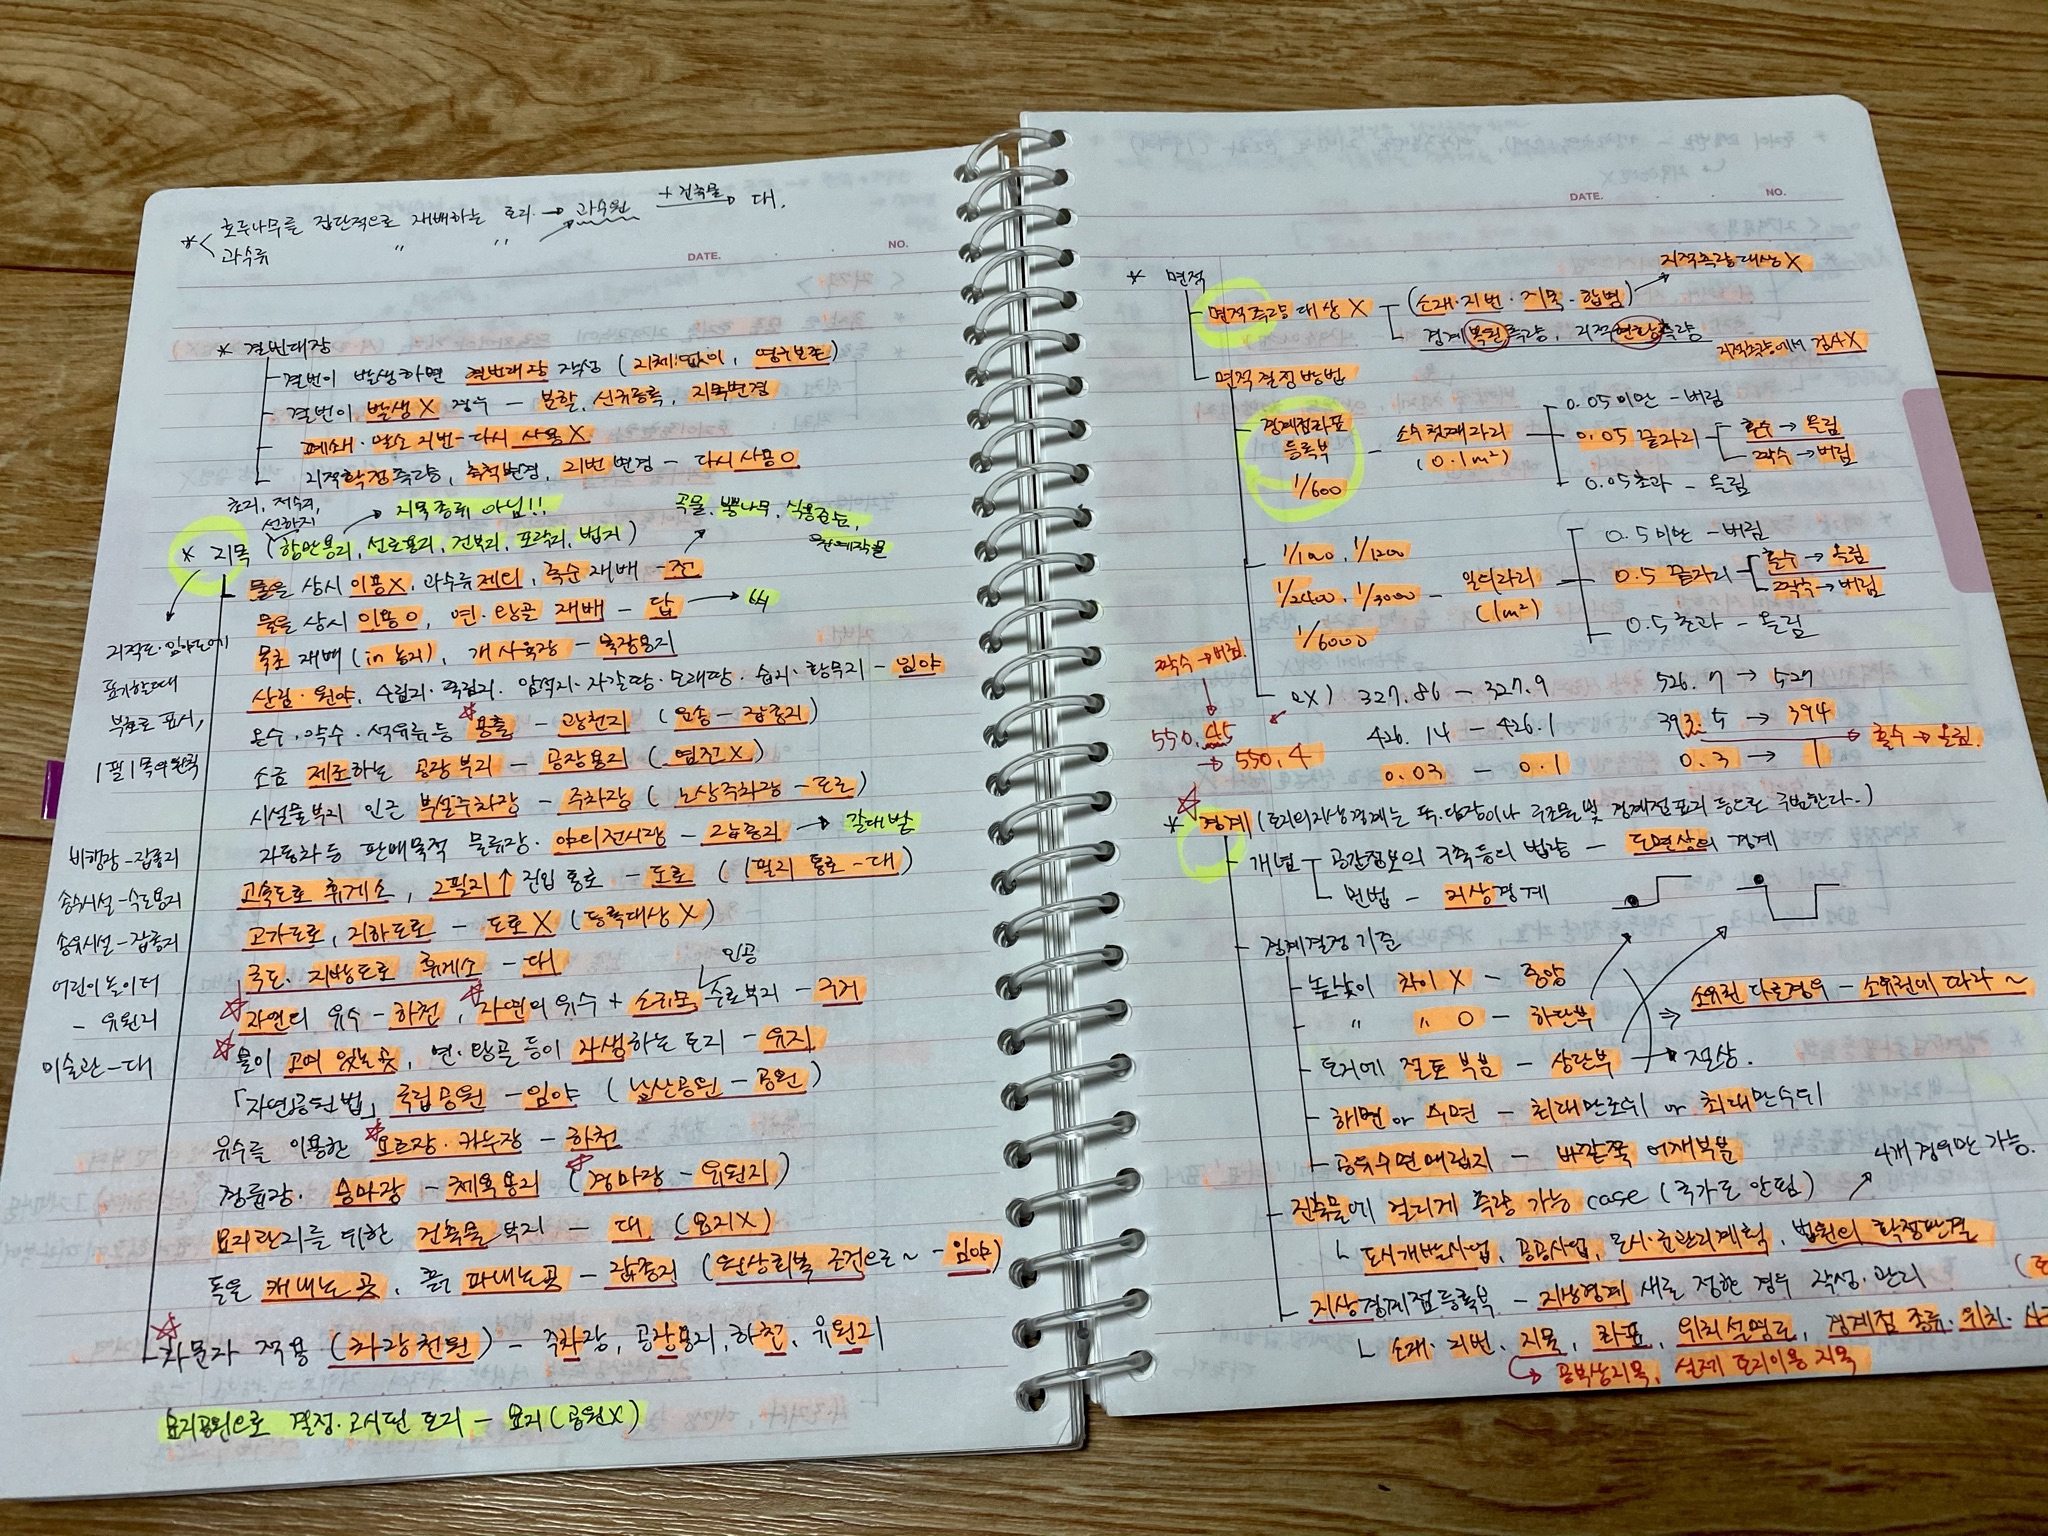 * < 호두나무를 집단적으로 재배하는 토지 → 과수원 + 건축물 → 대.
과수류 〃 〃
DATE. NO.
* 결번대장
결번이 발생하면 결번대장 작성 (지체없이, 영구보존)
결번이 발생X 경우 - 분할, 신규등록, 지목변경
폐쇄·말소 지번 - 다시 사용X
지적확정측량, 축척변경, 지번변경 - 다시 사용O
초지, 저수지,
선착지
→ 지목종류 아님!!
곡물, 뽕나무, 식용죽순,
관예작물
* 지목 (항만용지, 선로용지, 건부지, 포락지, 법지)
물을 상시 이용X, 과수류 제외, 죽순 재배 - 전
물을 상시 이용O, 연·왕골 재배 - 답 → 벼
목초 재배 (in 농지), 개 사육장 - 목장용지
산림·원야, 수림지·죽림지·암석지·자갈땅·모래땅·습지·황무지 - 임야
온수·약수·석유류 등 용출 - 광천지 (운송 - 잡종지)
소금 제조하는 공장부지 - 공장용지 (염전X)
시설물부지 인근 부설주차장 - 주차장 (노상주차장 - 도로)
자동차 등 판매목적 물류장·야외전시장 - 잡종지 → 갈대밭
고속도로 휴게소, 2필지↑ 진입 통로 - 도로 (1필지 통로 - 대)
고가도로, 지하도로 - 도로X (등록대상X)
국도·지방도로 휴게소 - 대
인공
자연의 유수 - 하천, 자연의 유수 + 소규모 수로부지 - 구거
물이 고여 있는 곳, 연·왕골 등이 자생하는 토지 - 유지
「자연공원법」 국립공원 - 임야 (남산공원 - 공원)
유수를 이용한 요트장·카누장 - 하천
경륜장·승마장 - 체육용지 (경마장 - 유원지)
묘지관리를 위한 건축물 부지 - 대 (묘지X)
돌을 캐내는 곳, 흙 파내는 곳 - 잡종지 (원상회복 조건으로 ~ - 임야)
차문자 적용 (차장천원) - 주차장, 공장용지, 하천, 유원지
묘지공원으로 결정·고시된 토지 - 묘지 (공원X)
지적도·임야도에
표기할때
부호로 표시,
1필1목의 원칙
비행장 - 잡종지
송수시설 - 수도용지
송유시설 - 잡종지
어린이놀이터
- 유원지
미술관 - 대
DATE. NO.
* 면적
지적측량대상X
면적측량 대상 X (소재·지번·지목·합병)
경계복원측량, 지적현황측량
지적측량에서 검사X
면적결정방법
경계점좌표
등록부
1/600
소수 첫째자리
(0.1m²)
0.05미만 - 버림
0.05 끝자리 홀수 → 올림
짝수 → 버림
0.05초과 - 올림
1/1000, 1/1200
1/2400, 1/3000 - 일의자리
1/6000 (1m²)
0.5미만 - 버림
0.5 끝자리 홀수 → 올림
짝수 → 버림
0.5초과 - 올림
짝수 → 버림.
550.45
→ 550.4
ex) 327.86 - 327.9 526.7 → 527
426.14 - 426.1 393.5 → 394
0.03 - 0.1 0.3 → 1
홀수 → 올림.
* 경계 (토지의 지상경계는 둑·담장이나 구조물 및 경계점표지 등으로 구분한다.)
개념 공간정보의 구축 등의 법량 - 도면상의 경계
민법 - 지상경계
경계결정 기준
높낮이 차이 X - 중앙
〃 〃 O - 하단부
⇒ 소유권 다른경우 - 소유권에 따라 ~
토지에 절토 부분 - 상단부 → 절상.
해면 or 수면 - 최대만조위 or 최대만수위
공유수면매립지 - 바깥쪽 어깨부분
4개 경우만 가능.
건축물에 걸리게 측량 가능 case (국가도 안됨)
도시개발사업, 공공사업, 도시·군관리계획, 법원의 확정판결
지상경계점등록부 - 지상경계 새로 정한 경우 작성·관리
소재·지번, 지목, 좌표, 위치설명도, 경계점 종류·위치·사
→ 공부상지목, 실제 토지이용 지목